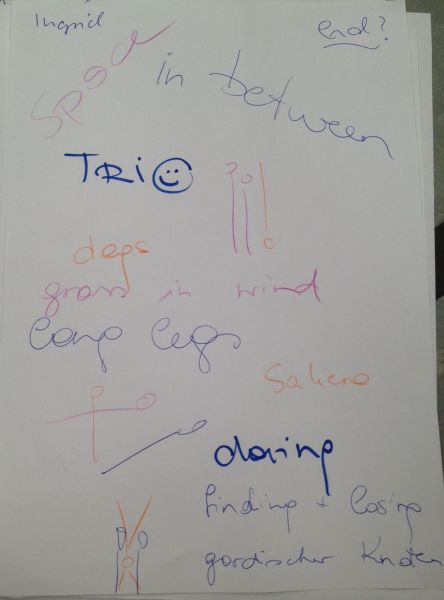 Ingrid
end?
Space
in between
TRiO
dogs
grass in wind
long legs
Saliera
daring
finding + losing
gordischer Knoten